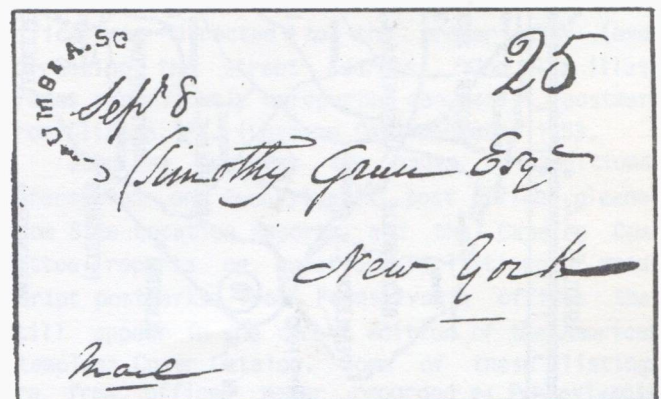 UMBIA.SC
25
Sept 8
Timothy Green Esqr
New York
Mail